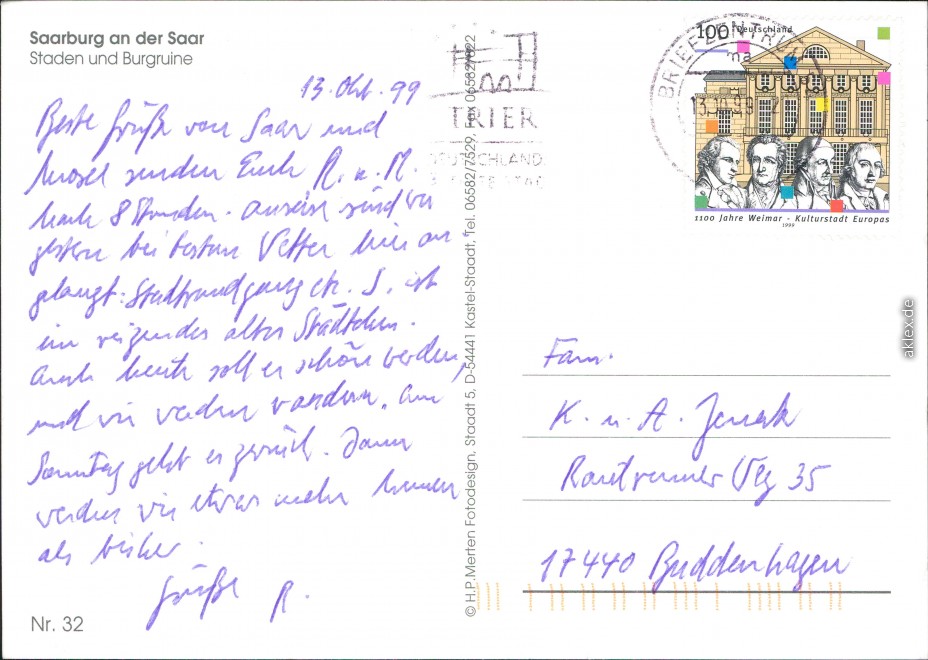 Saarburg an der Saar
Staden und Burgruine
13. Okt. 99
Beste Grüße von Saar und
Mosel senden Euch R. u. M.
Nach 8 Stunden Anreise sind wir
gestern bei bestem Wetter hier an-
gelangt. Stadtrundgang etc. S. ist
ein reizendes altes Städtchen.
Auch heute soll es schön werden,
und wir werden wandern. Am
Sonntag geht es zurück. Dann
werden wir etwas mehr
als bisher.
Grüße R.
Nr. 32
© H.P.Merten Fotodesign, Staadt 5, D-54441 Kastel-Staadt, Tel. 06582/7529, Fax 06582/7622
TRIER
DEUTSCHLANDS
BRIEFZENTRUM
13.10.99
100 Deutschland
1100 Jahre Weimar - Kulturstadt Europas
1999
Fam.
K. u. A.
Weg 35
17440 Buddenhagen
aklex.de